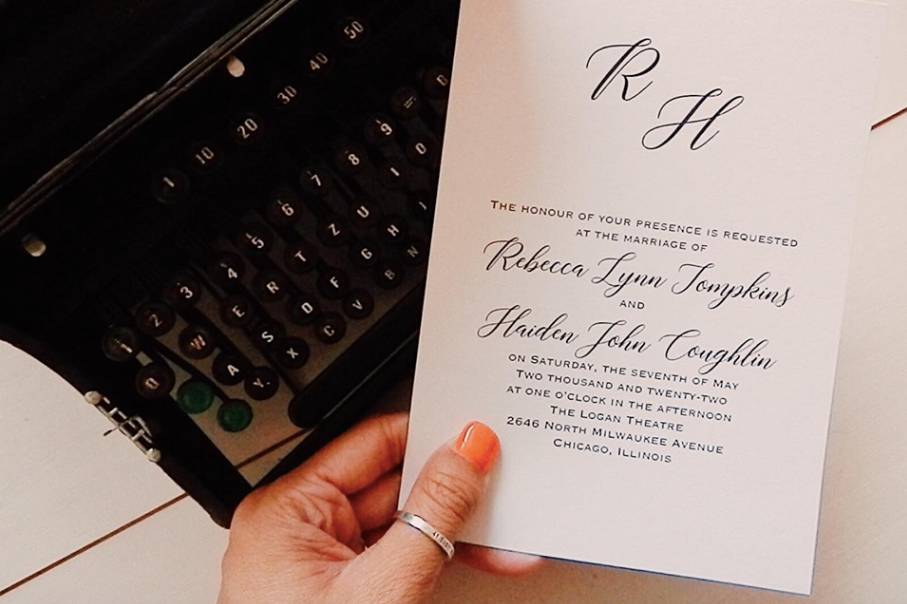 R
H
THE HONOUR OF YOUR PRESENCE IS REQUESTED
AT THE MARRIAGE OF
Rebecca Lynn Tompkins
AND
Haiden John Coughlin
ON SATURDAY, THE SEVENTH OF MAY
TWO THOUSAND AND TWENTY-TWO
AT ONE O'CLOCK IN THE AFTERNOON
THE LOGAN THEATRE
2646 NORTH MILWAUKEE AVENUE
CHICAGO, ILLINOIS
1 10 20 30 40 50
2 3 4 5 6 7 8 9
Q W E R T Z U I O
A S D F G H
Y X C V B N